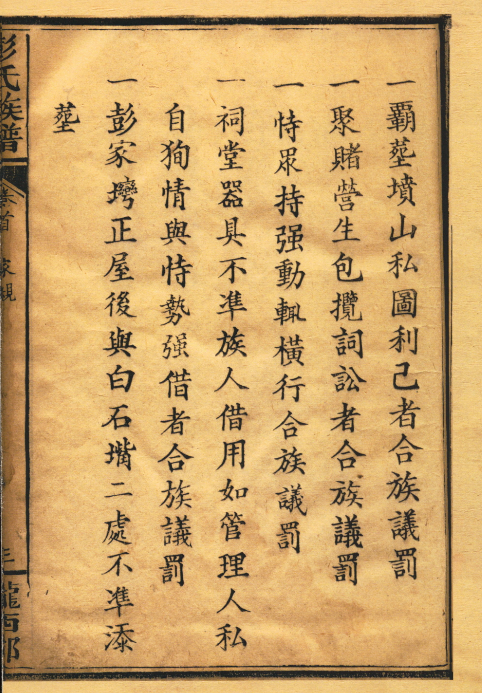 一霸塟墳山私圖利己者合族議罰
一聚賭營生包攬詞訟者合族議罰
一恃眾持强動輒橫行合族議罰
一祠堂器具不凖族人借用如管理人私
自狥情與恃勢强借者合族議罰
一彭家塆正屋後與白石嘴二處不凖添
塟
彭氏族譜
卷首
家規
三
龍西郡